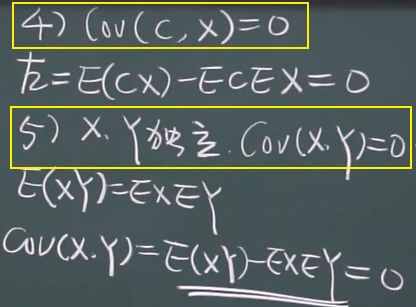 4) Cov(C, X)=0
左=E(CX)-ECEX=0
5) X、Y独立.Cov(X.Y)=0
E(XY)=EXEY
Cov(X.Y)=E(XY)-EXEY=0